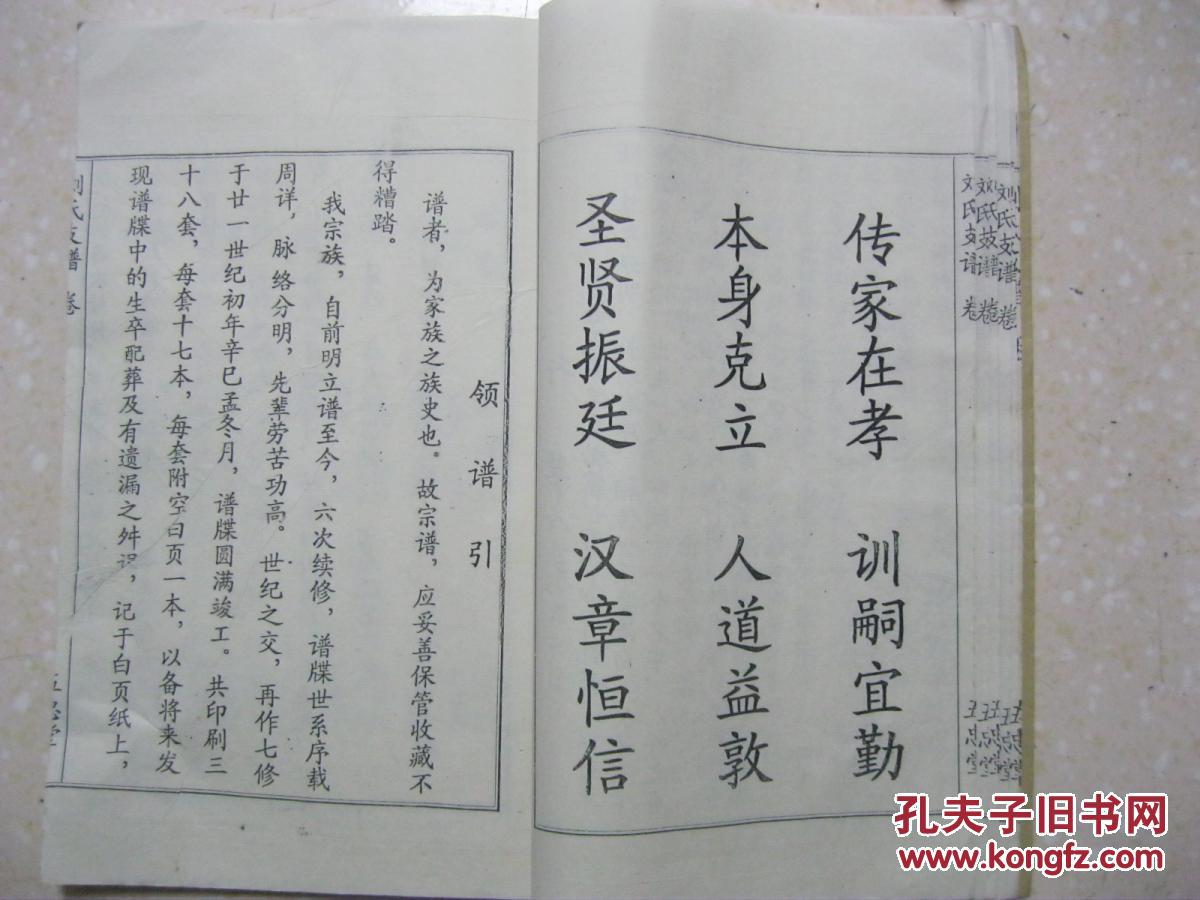 传家在孝 训嗣宜勤
本身克立 人道益敦
圣贤振廷 汉章恒信
刘氏支谱 卷
领谱引
谱者，为家族之族史也。故宗谱，应妥善保管收藏不
得糟踏。
我宗族，自前明立谱至今，六次续修，谱牒世系序载
周详，脉络分明，先辈劳苦功高。世纪之交，再作七修
于廿一世纪初年辛巳孟冬月，谱牒圆满竣工。共印刷三
十八套，每套十七本，每套附空白页一本，以备将来发
现谱牒中的生卒配葬及有遗漏之舛误，记于白页纸上，
刘氏支谱 卷
孔夫子旧书网
www.kongfz.com